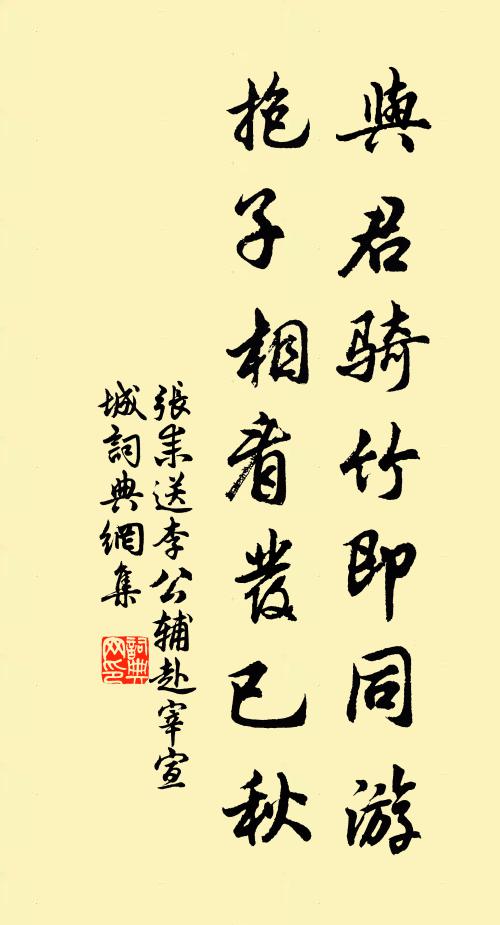 與君騎竹即同游
抱子相看發已秋
張耒送李公輔赴宰宣
城詞典網集
詞典網印